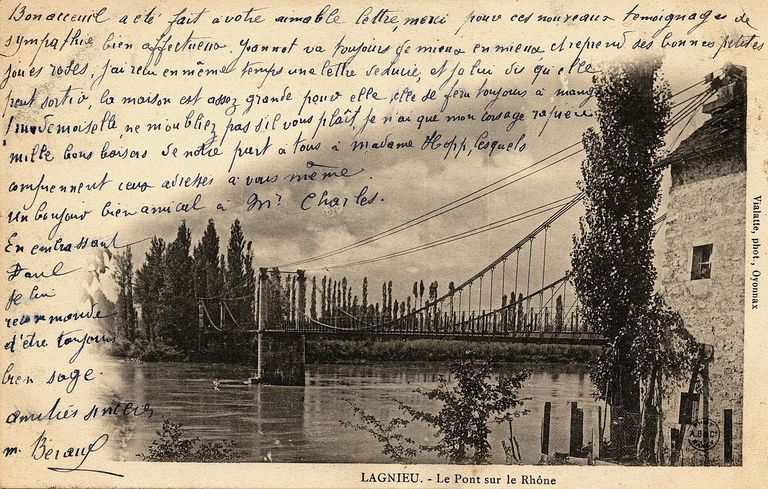 Bon acceuil a été fait à votre aimable lettre, merci pour ces nouveaux témoignages de
sympathie bien affectueux. Jeannot va toujours de mieux en mieux et reprend ses bonnes petites
joues roses. J'ai reçu en même temps une lettre de Lucie, et je lui dis qu'elle
peut sortir, la maison est assez grande pour elle, elle se fera toujours à manger
Mademoiselle, ne m'oubliez pas s'il vous plaît je n'ai que mon corsage
mille bons baisers de notre part à tous à madame Hopp, lesquels
comprennent ceux adressés à vous même.
Un bonjour bien amical à Mr. Charles.
En embrassant
Paul
je lui
recommande
d'être toujours
bien sage.
amitiés sincères
M. Béraud
LAGNIEU. - Le Pont sur le Rhône
Vialatte, phot., Oyonnax